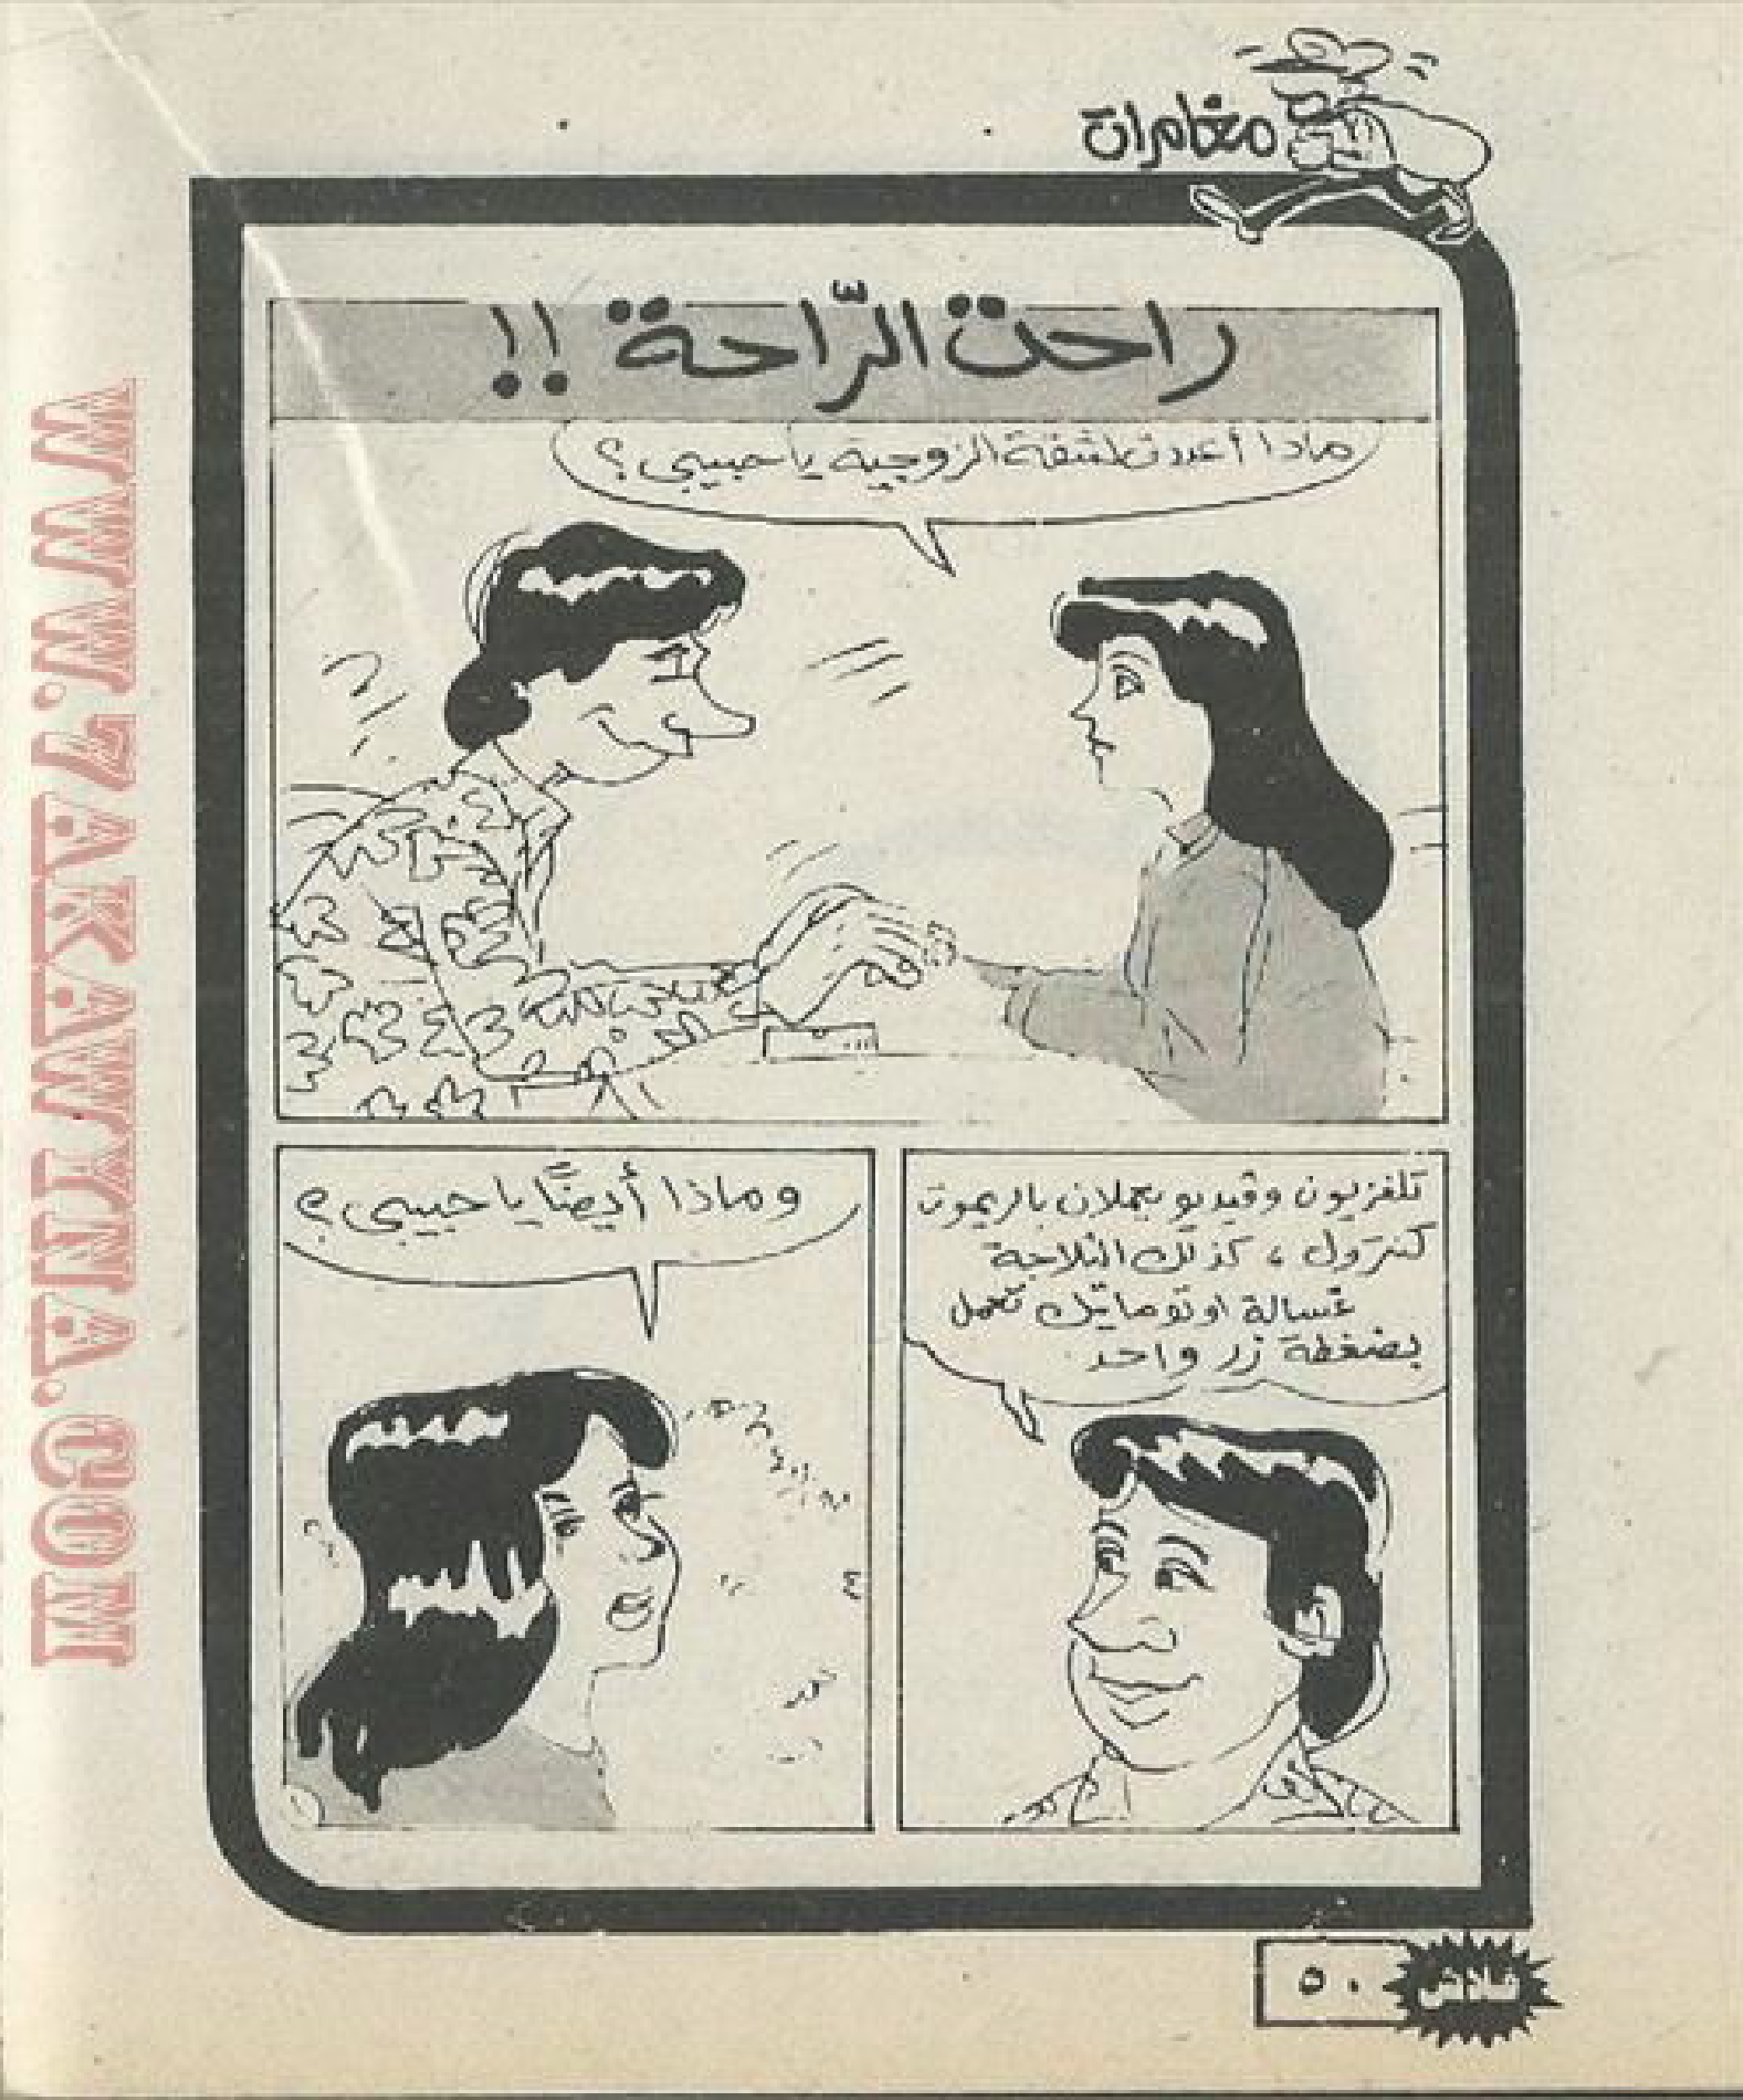 مغامرات
راحت الرّاحة !!
ماذا أعددت لشقة الزوجية يا حبيبي ؟
تلفزيون وفيديو يعملان بالريموت
كنترول ، كذلك الثلاجة
غسالة اوتوماتيك تعمل
بضغطة زر واحد
وماذا أيضًا يا حبيبي ؟
٥٠
فلاش
WWW.7AKAWITNA.COM